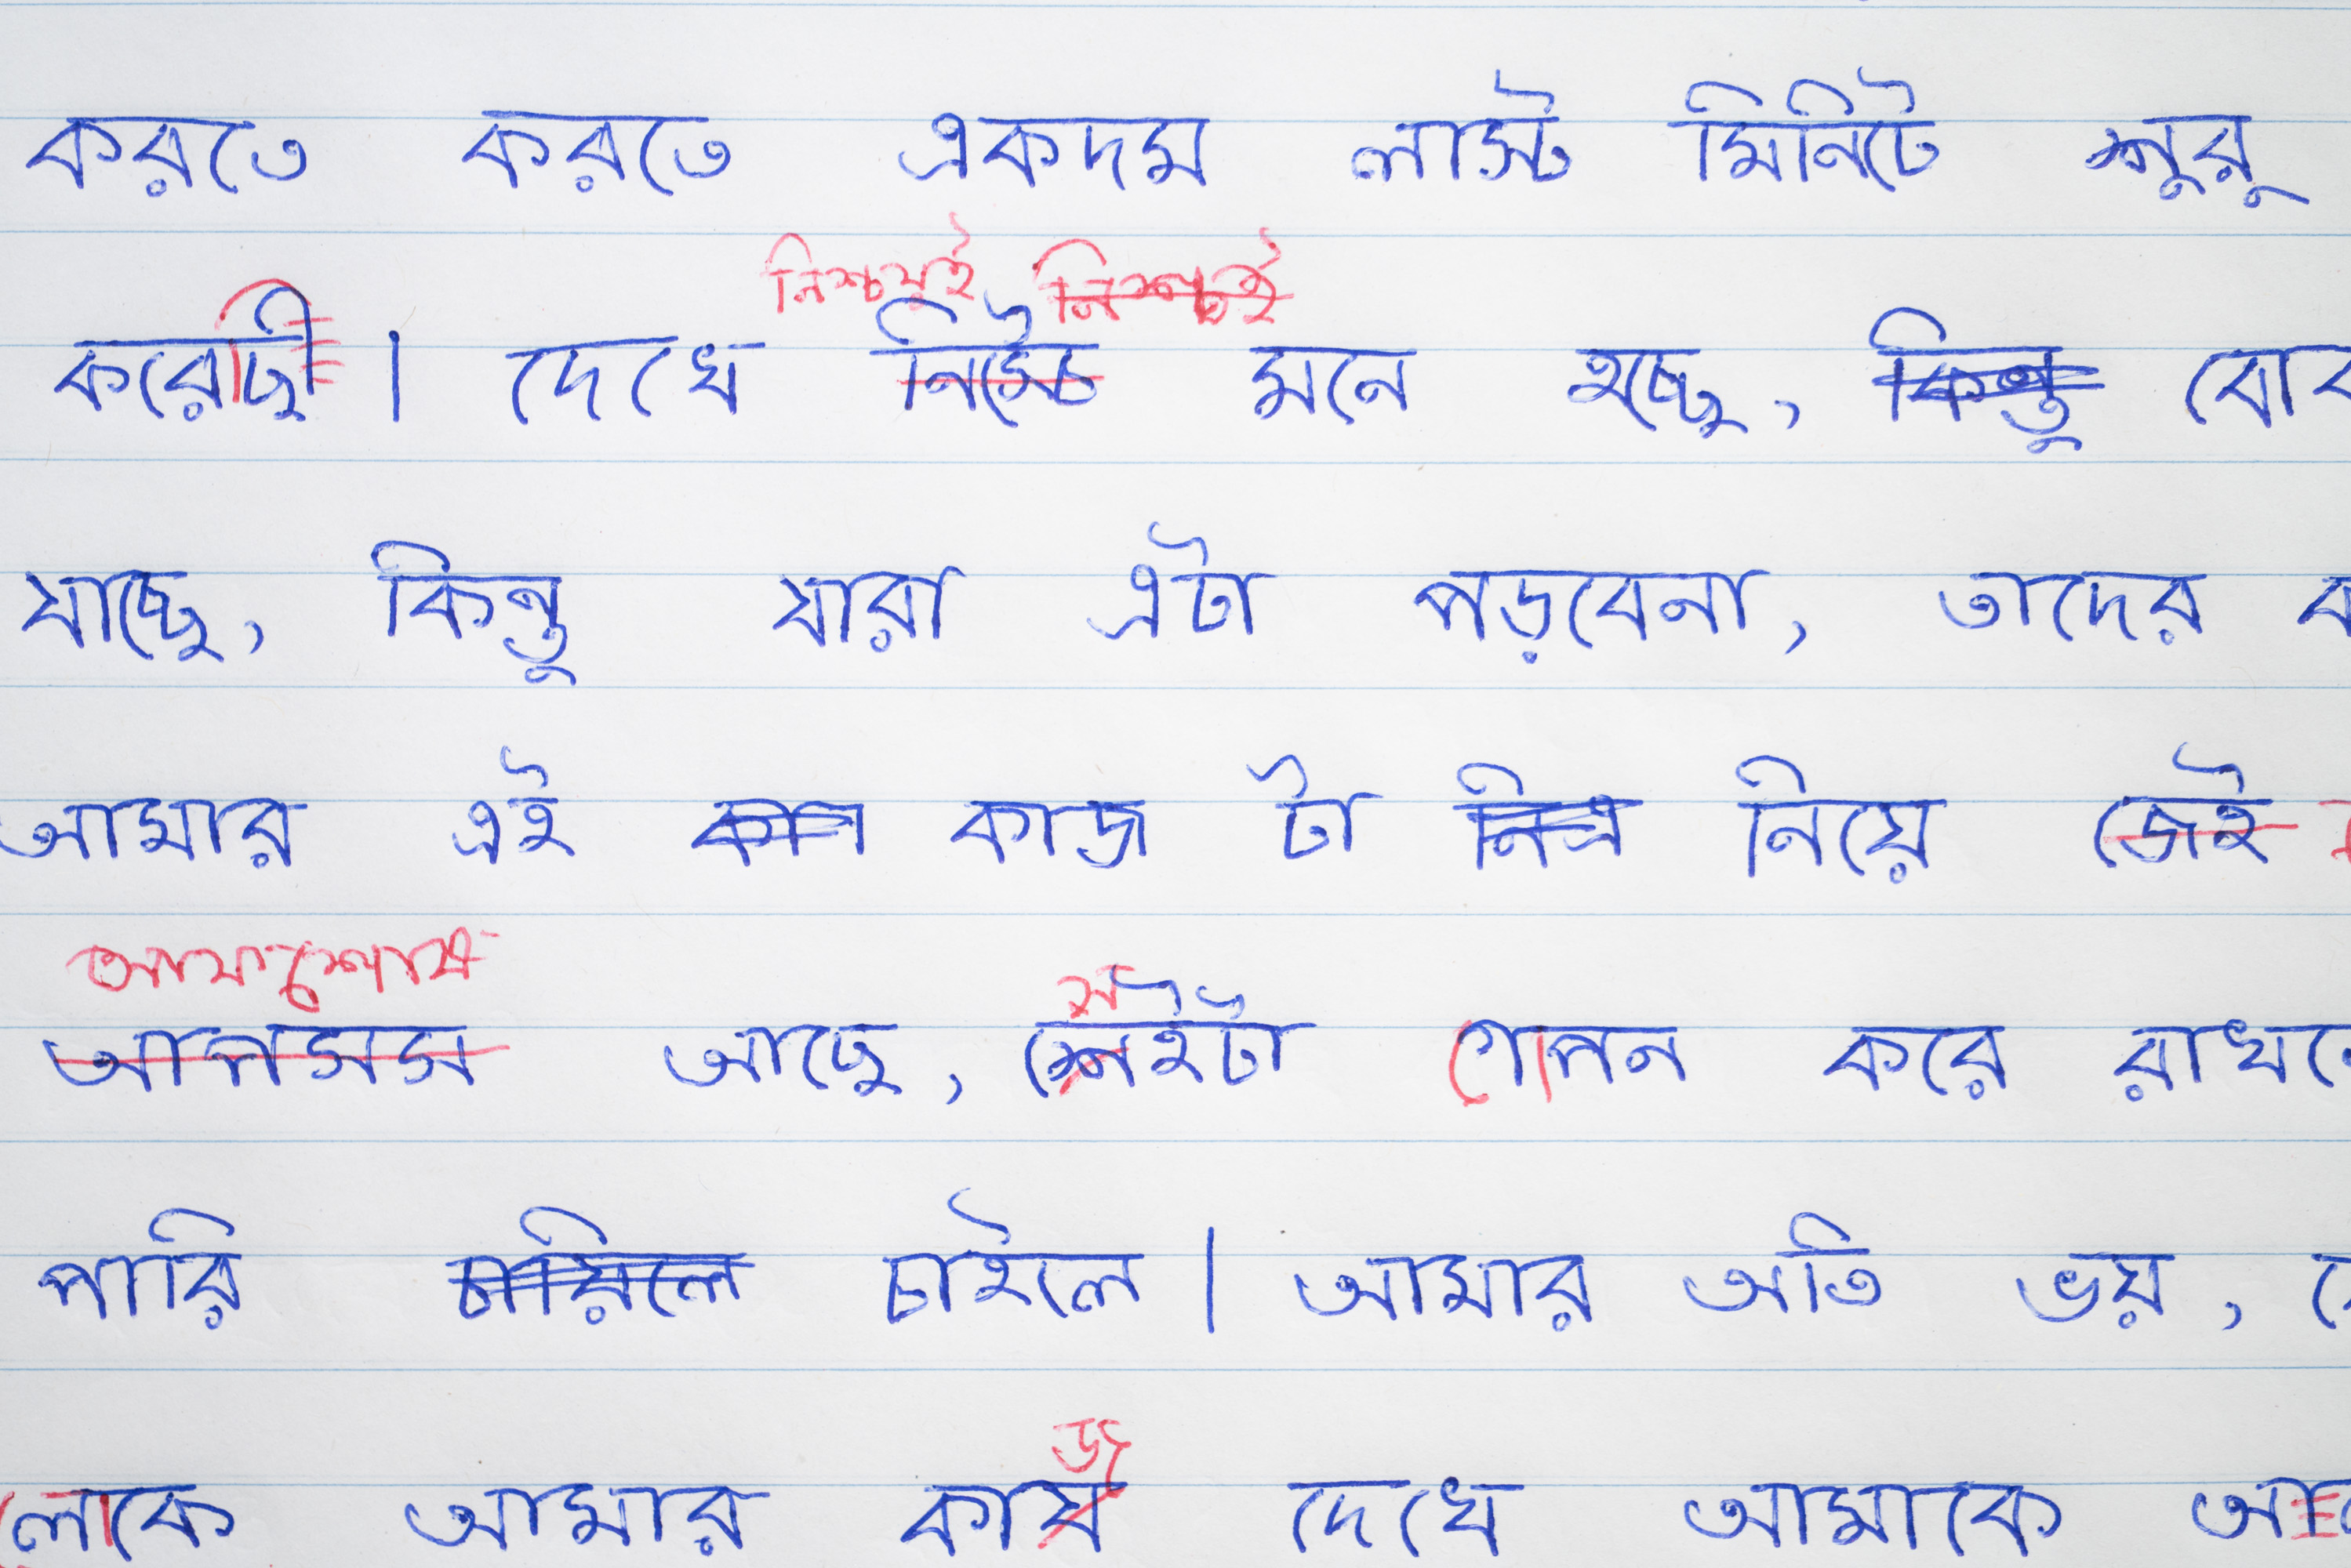 করতে করতে একদম লাস্ট মিনিটে শুরু
নিশ্চয়ই নিশ্চই
করেছি। দেখে মনে হচ্ছে,
যাচ্ছে, কিন্তু যারা এটা পড়বেনা, তাদের
আমার এই কাজ টা নিয়ে জেই
আফশোষ
আপসস আছে, সেইটা গোপন করে
পারি চায়িলে চাইলে। আমার অতি ভয়,
জ
লোকে আমার কায দেখে আমাকে